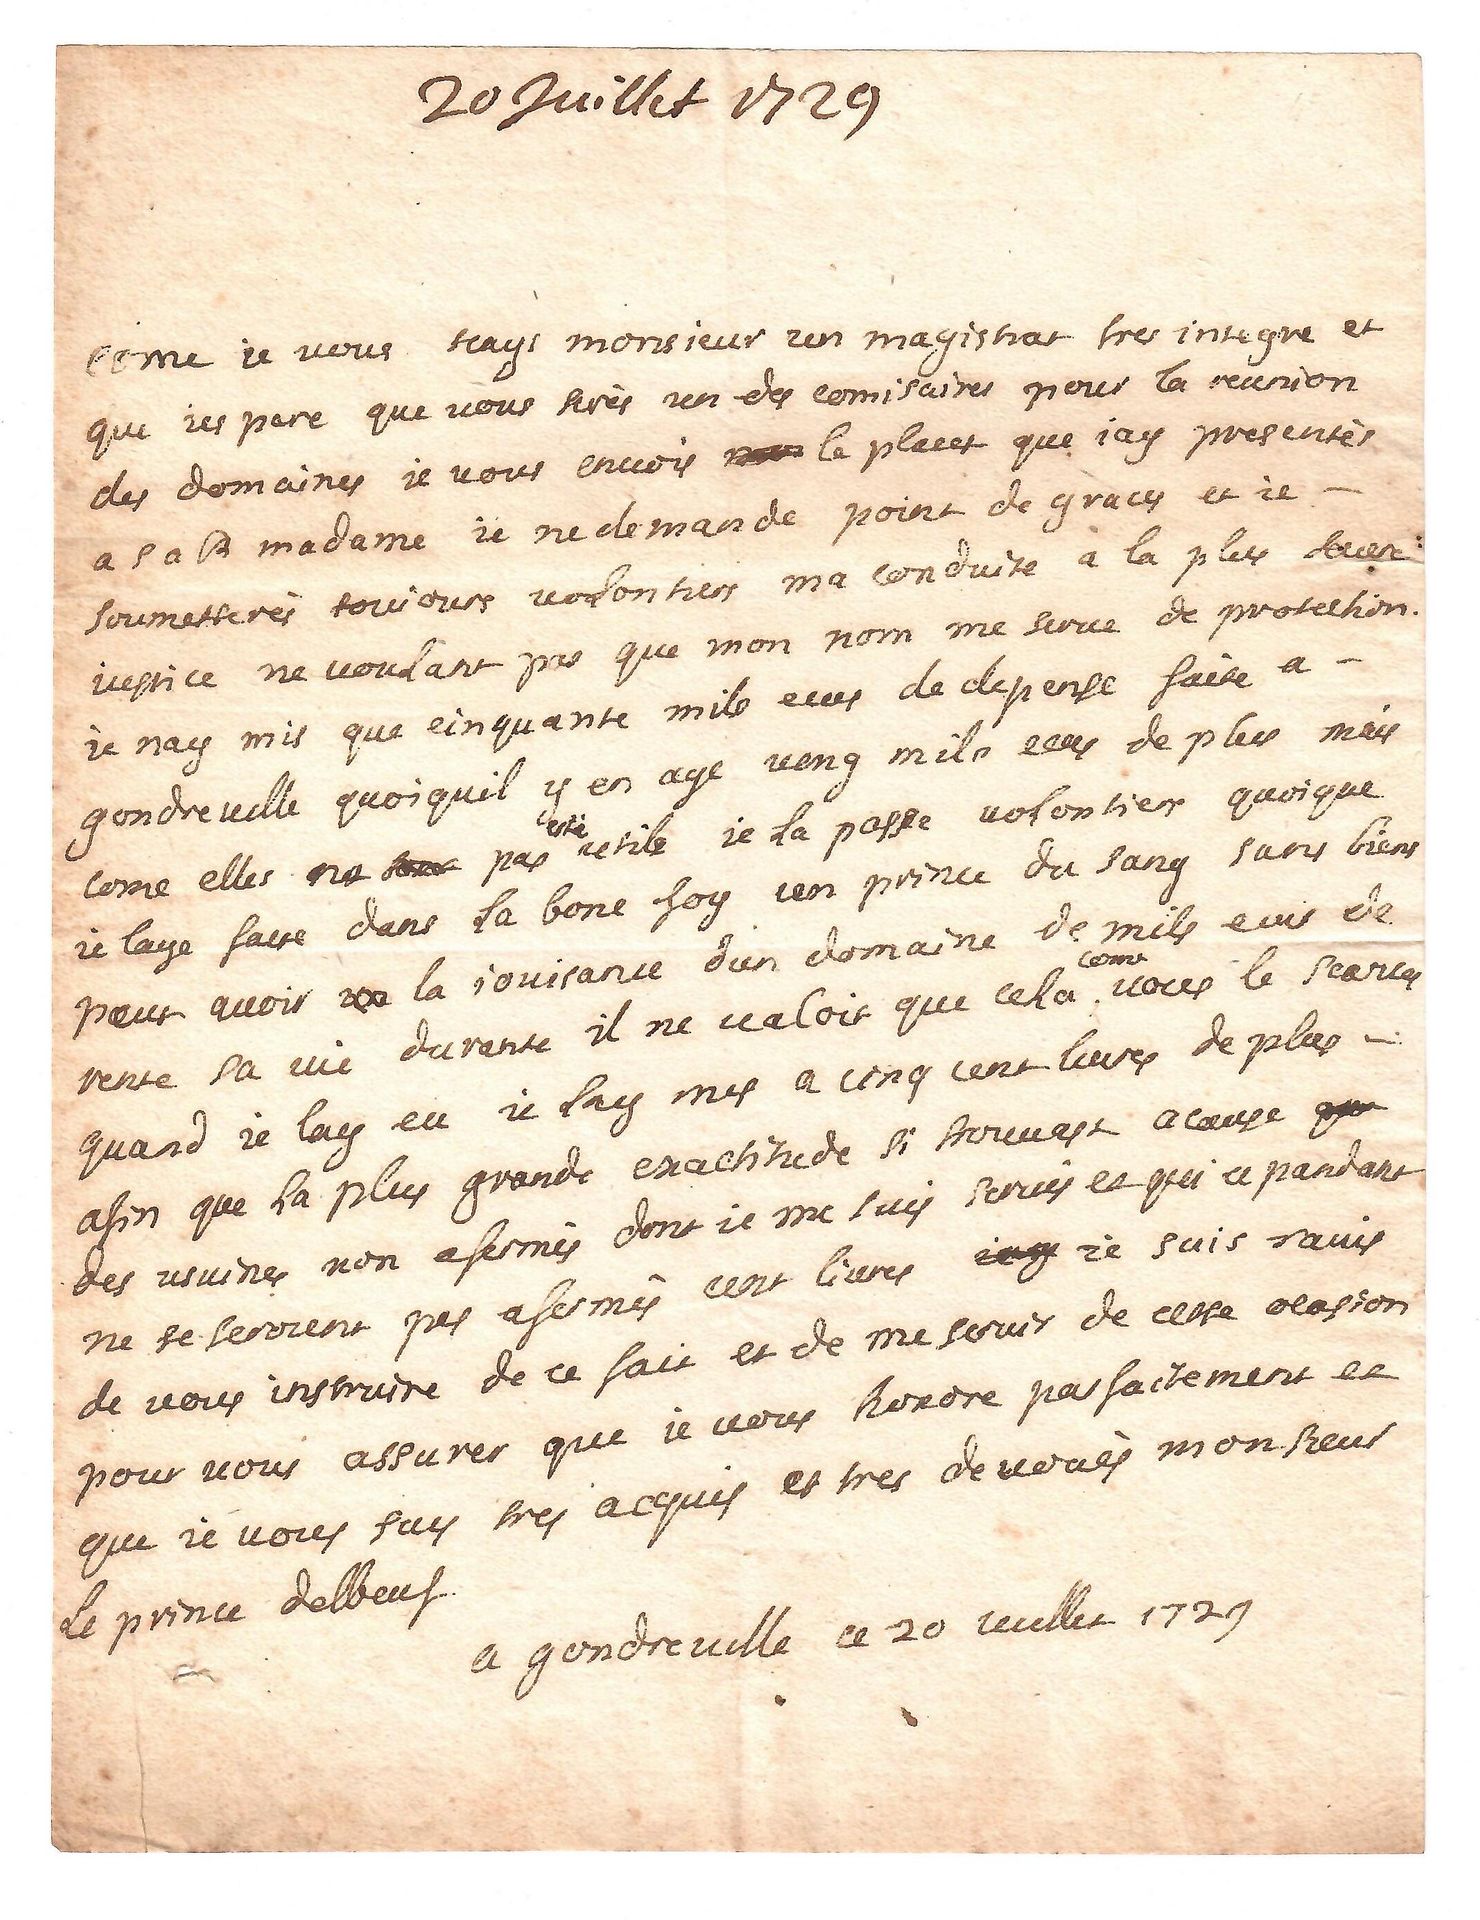 20 Juillet 1729
come ie vous scays monsieur un magistrat tres integre et
que iespere que vous serés un des comisaires pour la reunion
des domaines ie vous envois le placet que iay presentés
a s a R madame ie ne demande point de graces et ie –
soumetterés touiours volontiers ma conduite a la plus severe
iustice ne voulant pas que mon nom me serve de protection.
ie nay mis que cinquante mils ecus de depense faite a –
gondreville quoiquil y en aye veng mils ecus de plus mais
come elles ne pas esté utile ie la passe volontiers quoique
ie laye faite dans la bone foy un prince du sang sans biens
peut avoir la iouisance dun domaine de mils ecus de
rente sa vie durante il ne valoit que cela come vous le scaves
quand ie lay eu ie lay mis a cinq cent livres de plus –
afin que la plus grande exactitude si trouvast acause
des usuines non afermés dont ie me suis servis et qui ce pandant
ne se seroient pas afermés cent livres ie suis ravis
de vous instruire de ce fait et de me servir de cette ocasion
pour vous assurer que ie vous honore parfaitement et
que ie vous suy tres acquis et tres devoués monsieur
Le prince delbeuf
a gondreville ce 20 iuillet 1729